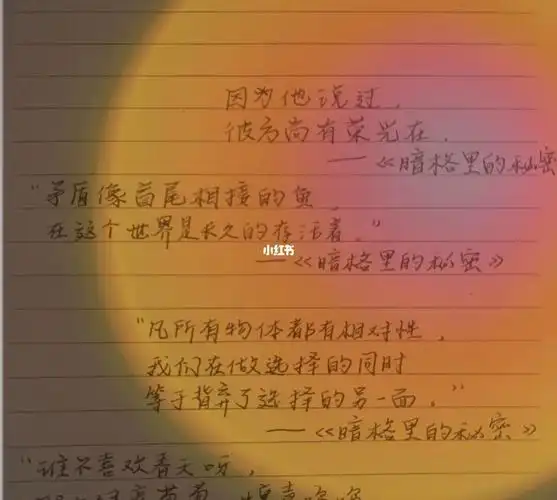 因为他说过，
彼方尚有荣光在．
——《暗格里的秘密
“矛盾像首尾相接的鱼，
在这个世界是永久的存活着。”
小红书
——《暗格里的秘密》
“凡所有物体都有相对性，
我们在做选择的同时
等于背弃了选择的另一面。”
——《暗格里的秘密》
“谁不喜欢春天呀，